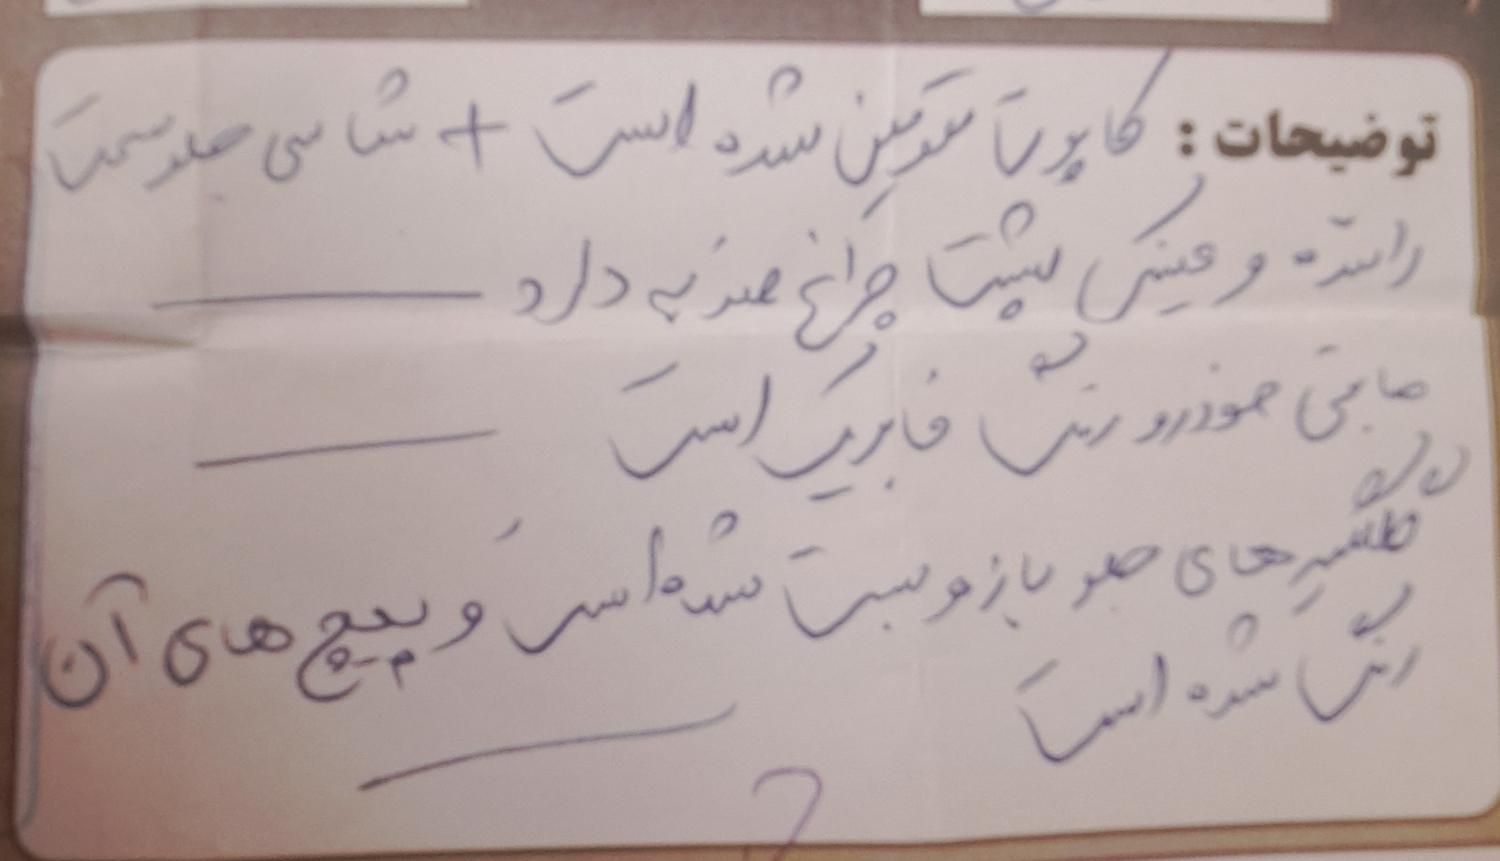 توضیحات : کاپوت تعویض شده است + شاسی جلو سمت
راننده و عینکی پشت چراغ ضربه دارد
مابقی خودرو رنگ فابریک است
گلگیرهای جلو باز و بست شده است و پیچ های آن
رنگ شده است